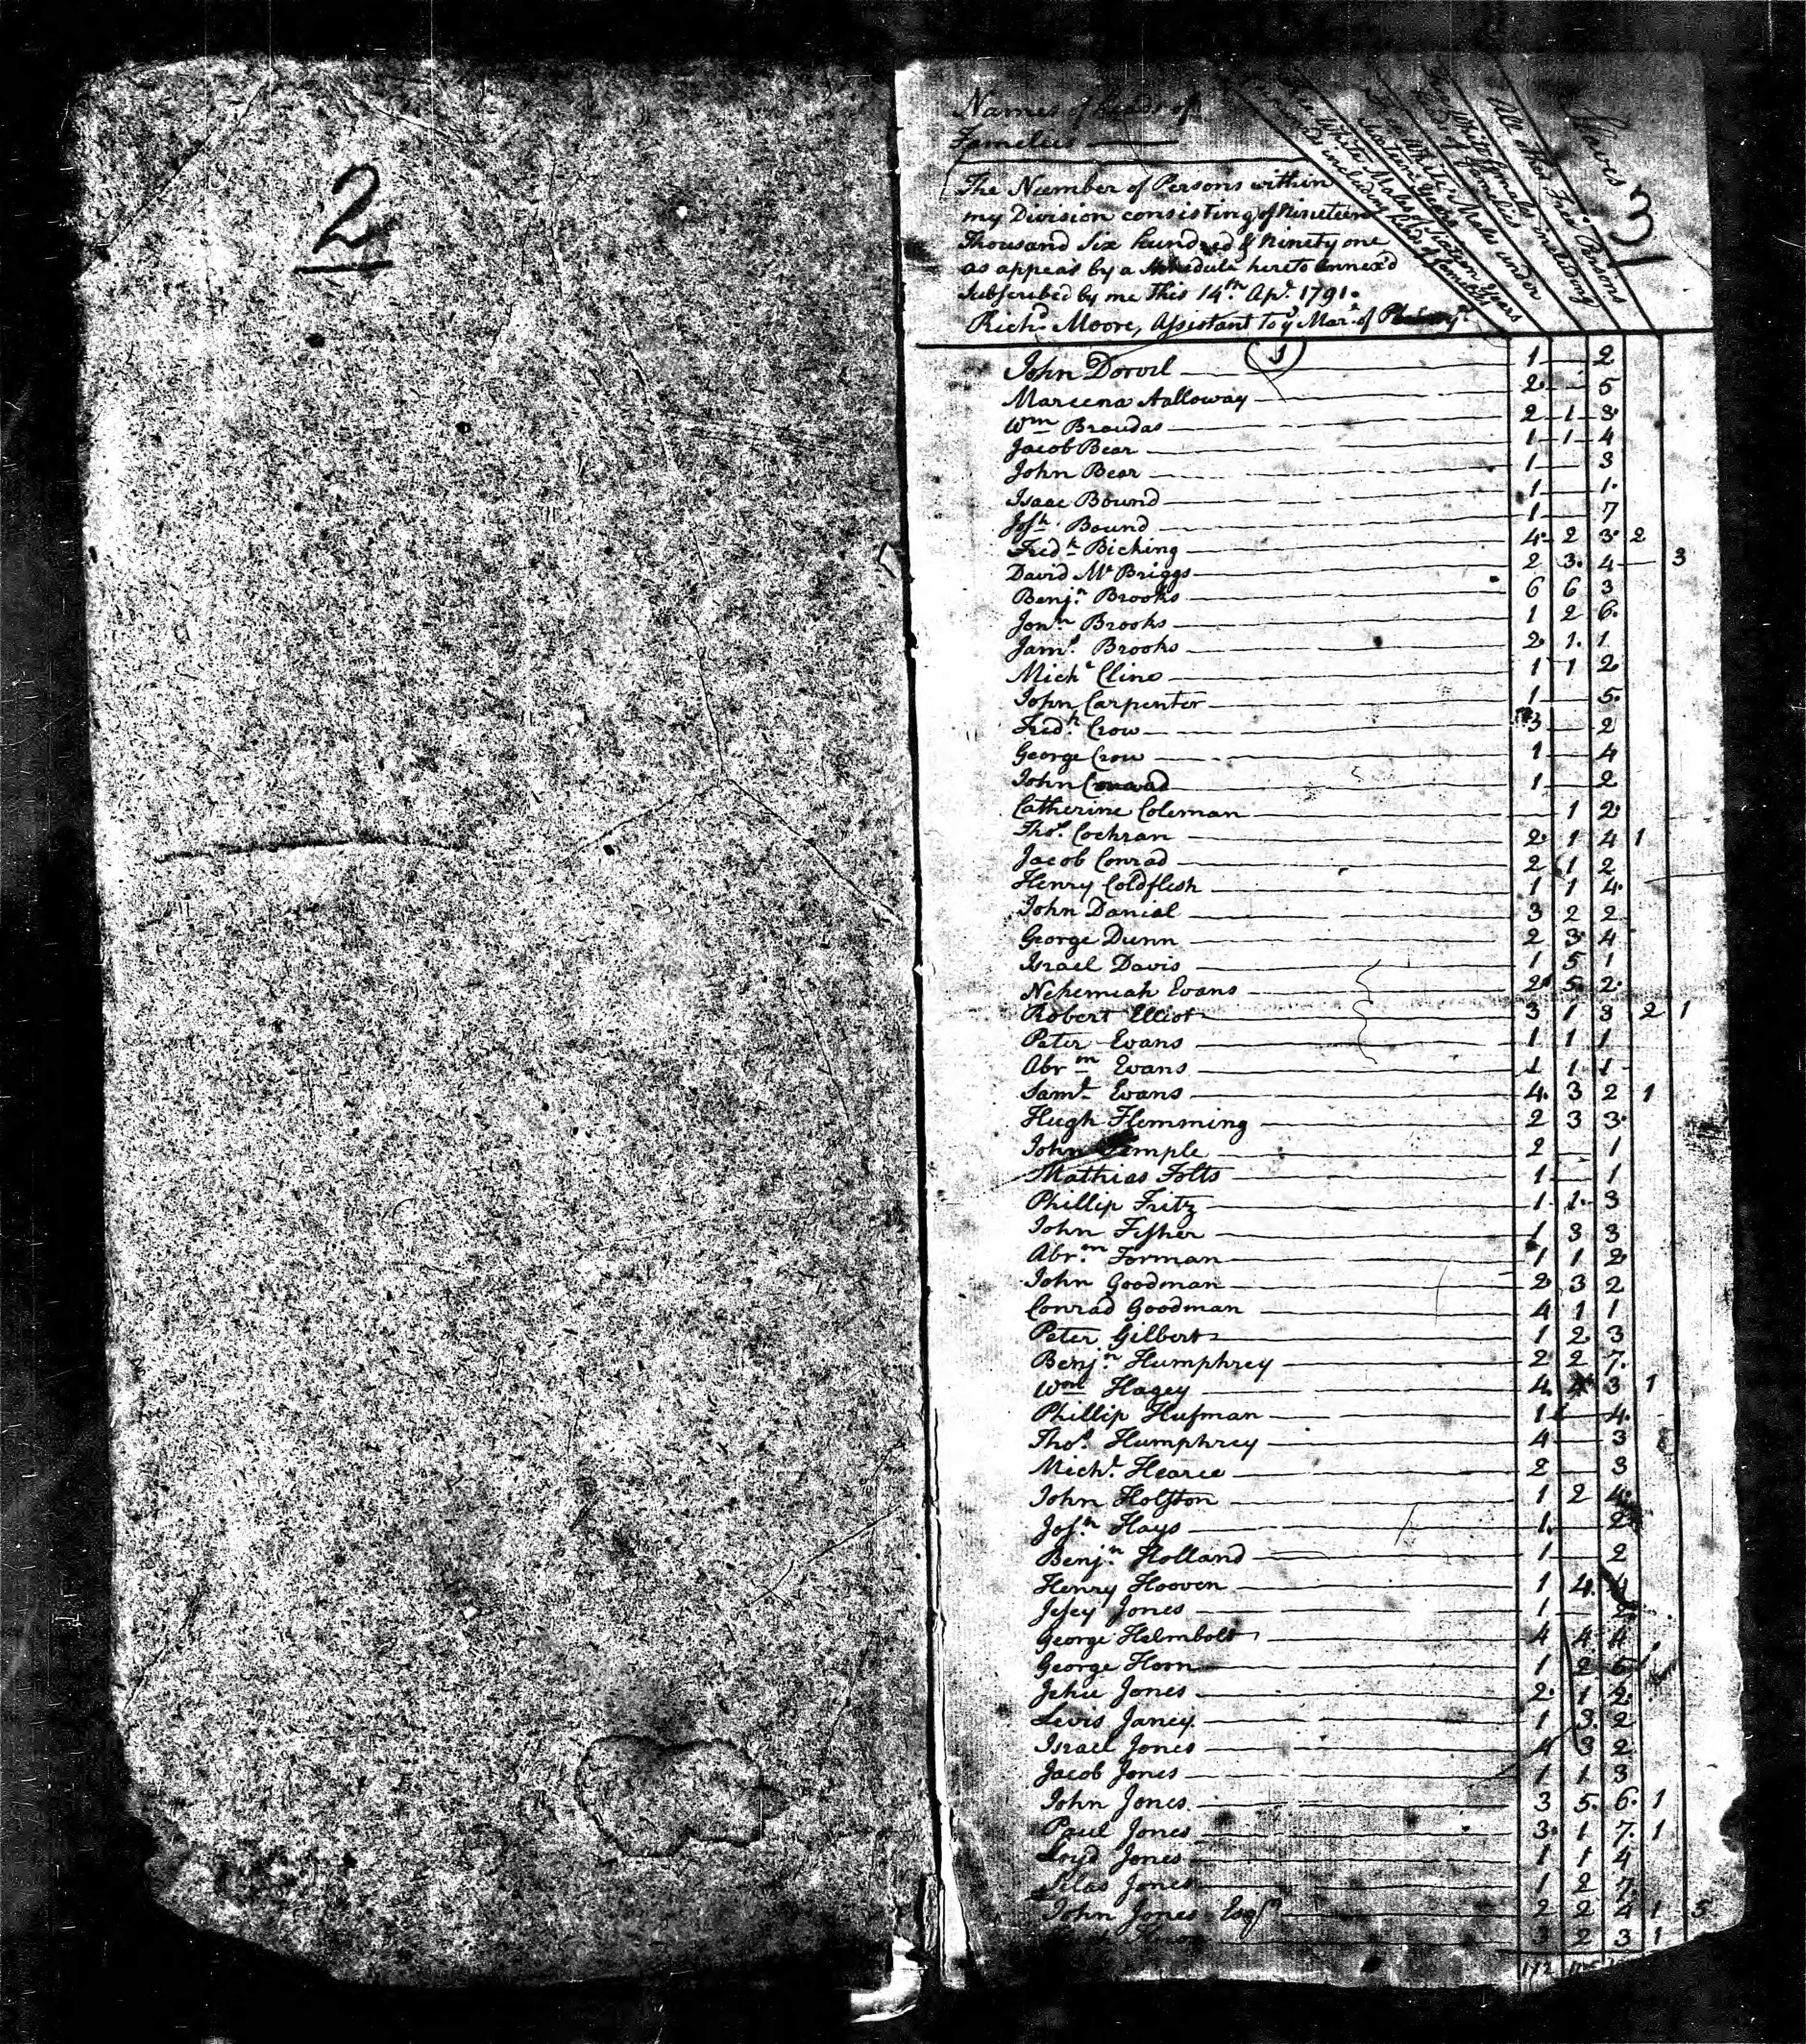 2
Names of heads of
Families
Free White Males of Sixteen Years
& upwards including heads of families
Free White Males under
Sixteen Years
Free White Females including
heads of families
All other Free Persons
Slaves
31
The Number of Persons within
my Division consisting of Nineteen
Thousand Six hundred & Ninety one
as appears by a Schedule hereto annex'd
Subscribed by me This 14th Apl. 1791.
Richd. Moore, Assistant to ye Marl. of
1
John Dorvil 1 — 2
Mareena Aalloway 2 — 5
Wm Brandas 2 1 3
Jacob Bear 1 1 4
John Bear 1 — 3
Isaac Bound 1 — 1
Josh. Bound 1 — 7
Fredk. Bicking 4 2 3 2
David Mc Briggs 2 3 4 — 3
Benjn. Brooks 6 6 3
Jonn. Brooks 1 2 6
Jams. Brooks 2 1 1
Michl Cline 1 1 2
John Carpenter 1 — 5
Fredk. Crow 3 — 2
George Crow 1 — 4
John Conrad 1 — 2
Catherine Coleman — 1 2
Thos. Cochran 2 1 4 1
Jacob Conrad 2 1 2
Henry Coldflesh 1 1 4
John Danial 3 2 2
George Dunn 2 3 4
Israel Davis 1 5 1
Nehemiah Evans 2 5 2
Robert Elliot 3 1 3 2 1
Peter Evans 1 1 1
Abrm Evans 1 1 1
Saml Evans 4 3 2 1
Hugh Flemming 2 3 3
John Temple 2 — 1
Mathias Folts 1 — 1
Phillip Fritz 1 1 3
John Fisher 1 3 3
Abrm. Forman 1 1 2
John Goodman 2 3 2
Conrad Goodman 4 1 1
Peter Gilbert 1 2 3
Benjn. Humphrey 2 2 7
Wm Hagey 4 4 3 1
Phillip Hufman 1 — 4
Thos. Humphrey 4 — 3
Michl. Hearce 2 — 3
John Holston 1 2 4
Josh. Hays 1 — 2
Benjn. Holland 1 — 2
Henry Hooven 1 4
Jesey Jones 1 — 2
George Helmbolt 4 4 4
George Horn 1 2 5
Jehu Jones 2 1 2
Levis Janey 1 3 2
Israel Jones 4 3 2
Jacob Jones 1 1 3
John Jones 3 5 6 1
Paul Jones 3 1 7 1
Loyd Jones 1 1 4
Silas Jones 1 2 7
John Jones Esqr 2 2 4 1 5
3 2 3 1
112